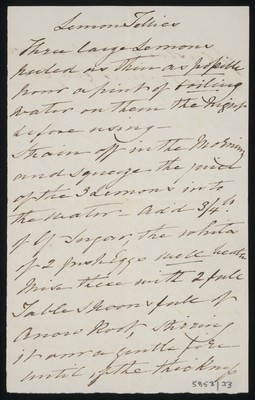 Lemon Jellies
Three large Lemons
peeled as thin as possible
pour a pint of boiling
water on them the Night
before using—
Strain off in the Morning
and squeeze the juice
of the 3 Lemons into
the water. Add 3/4 lb
of Sugar, the white
of 2 fresh Eggs well beaten
Mix these with 2 full
Table spoons full of
Arrow Root, stirring
it over a gentle fire
until of the thickness
5853/33